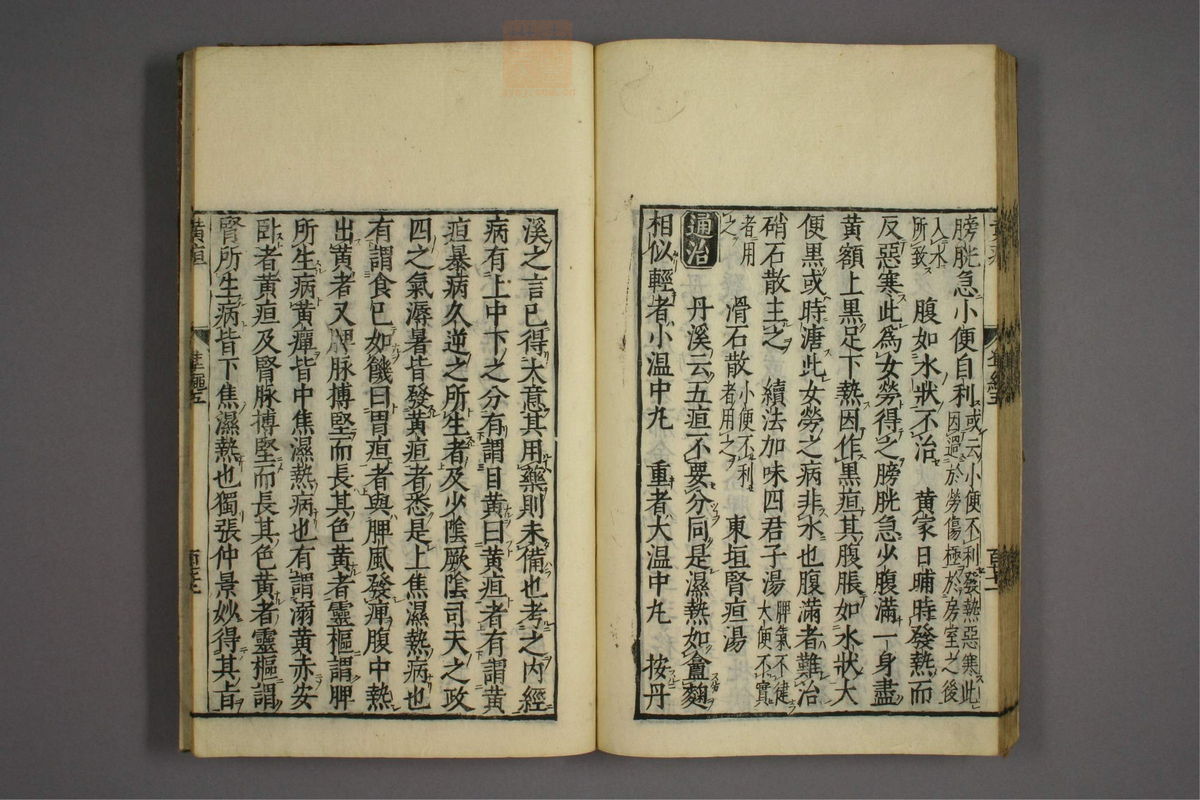 膀胱急小便自利或云小便不利發熱惡寒此因過於勞傷極於房室之後
人水所致　腹如水狀不治　黃家日晡時發熱而
反惡寒此爲女勞得之膀胱急少腹滿一身盡
黃額上黑足下熱因作黑疸其腹脹如水狀大
便黑或時溏此女勞之病非水也腹滿者難治
硝石散主之　續法加味四君子湯脾氣不健大便不實
者用之　滑石散小便不利者用之　東垣腎疸湯
通治　丹溪云五疸不要分同是濕熱如盦麴
相似輕者小温中丸　重者大温中丸　按丹
溪之言已得大意其用藥則未備也考之内經
病有上中下之分有謂目黃曰黃疸者有謂黃
疸暴病久逆之所生者及少陰厥陰司天之政
四之氣溽暑皆發黃疸者悉是上焦濕熱病也
有謂食已如饑曰胃疸者與脾風發癉腹中熱
出黃者又脾脉搏堅而長其色黃者靈樞謂脾
所生病黃癉皆中焦濕熱病也有謂溺黃赤安
臥者黃疸及腎脉搏堅而長其色黃者靈樞謂
腎所生病皆下焦濕熱也獨張仲景妙得其旨
黃疸